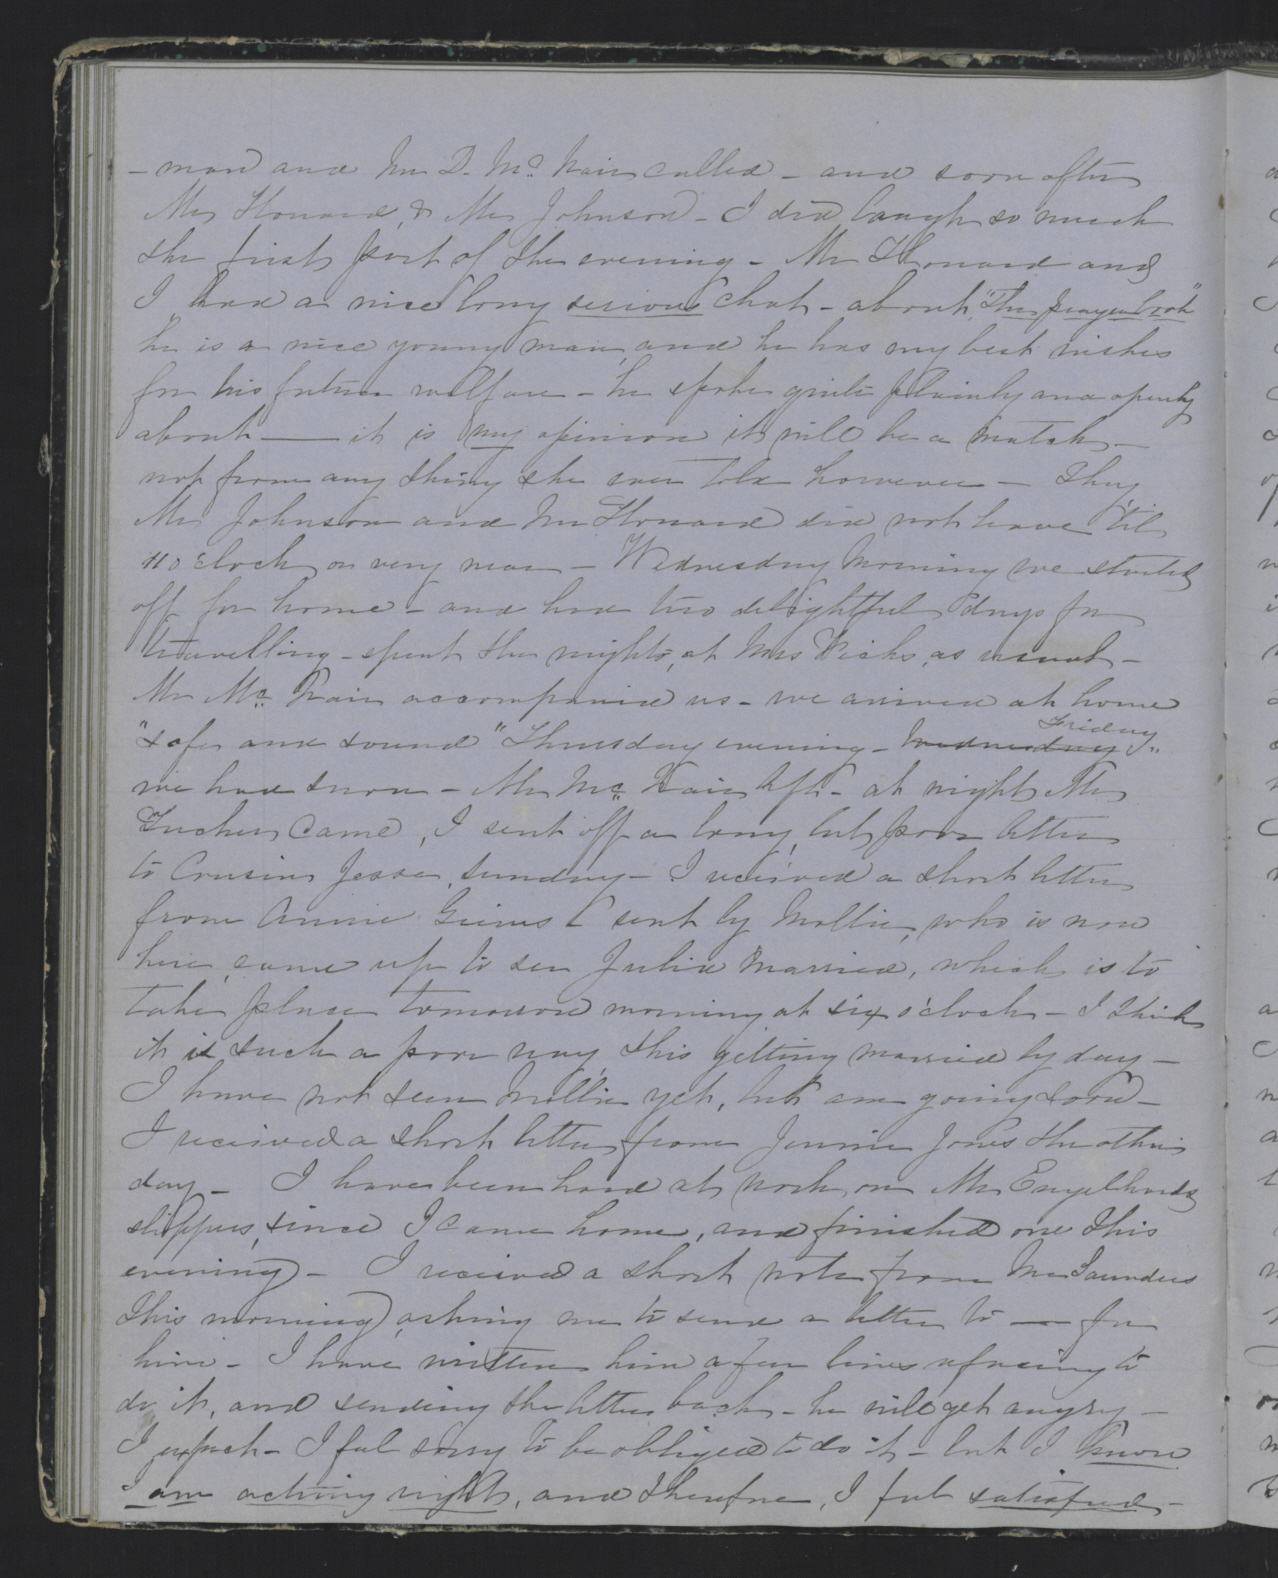 - man and Mr D. McNair called - and soon after
Mr Howard, & Mr Johnson - I did laugh so much
the first part of the evening - Mr Howard and
I had a nice long serious chat - about "the prayer book"
he is a nice young man, and he has my best wishes
for his future welfare - he spoke quite plainly and openly
about —— it is my opinion it will be a match -
not from any thing she ever told however - They,
Mr Johnson and Mr Howard did not leave 'til
11 o'clock or very near - Wednesday morning we started
off for home - and had two delightful days for
travelling - spent the night, at Mrs Hicks, as usual -
Mr McNair accompanied us - we arrived at home
"safe and sound" Thursday evening - Wednesday Friday
we had snow - Mr McNair left - at night Mr
Tucker came, I sent off a long, but poor letter
to Cousin Jesse, Sunday - I received a short letter
from Annie Grimes sent by Mollie, who is now
here, came up to see Julia married, which is to
take place tomorrow morning at six o'clock - I think
it is such a poor way, this getting married by day -
I have not seen Mollie yet, but am going soon -
I received a short letter from Jennie Jones the other
day - I have been hard at work on Mr Engelhard's
slippers, since I came home, and finished one this
evening - I received a short note from Mr Saunders
this morning, asking me to send a letter to —— for
him - I have written him a few lines refusing to
do it, and sending the letter back - he will get angry -
I expect - I feel sorry to be obliged to do it - but I know
I am acting right, and therefore, I feel satisfied -